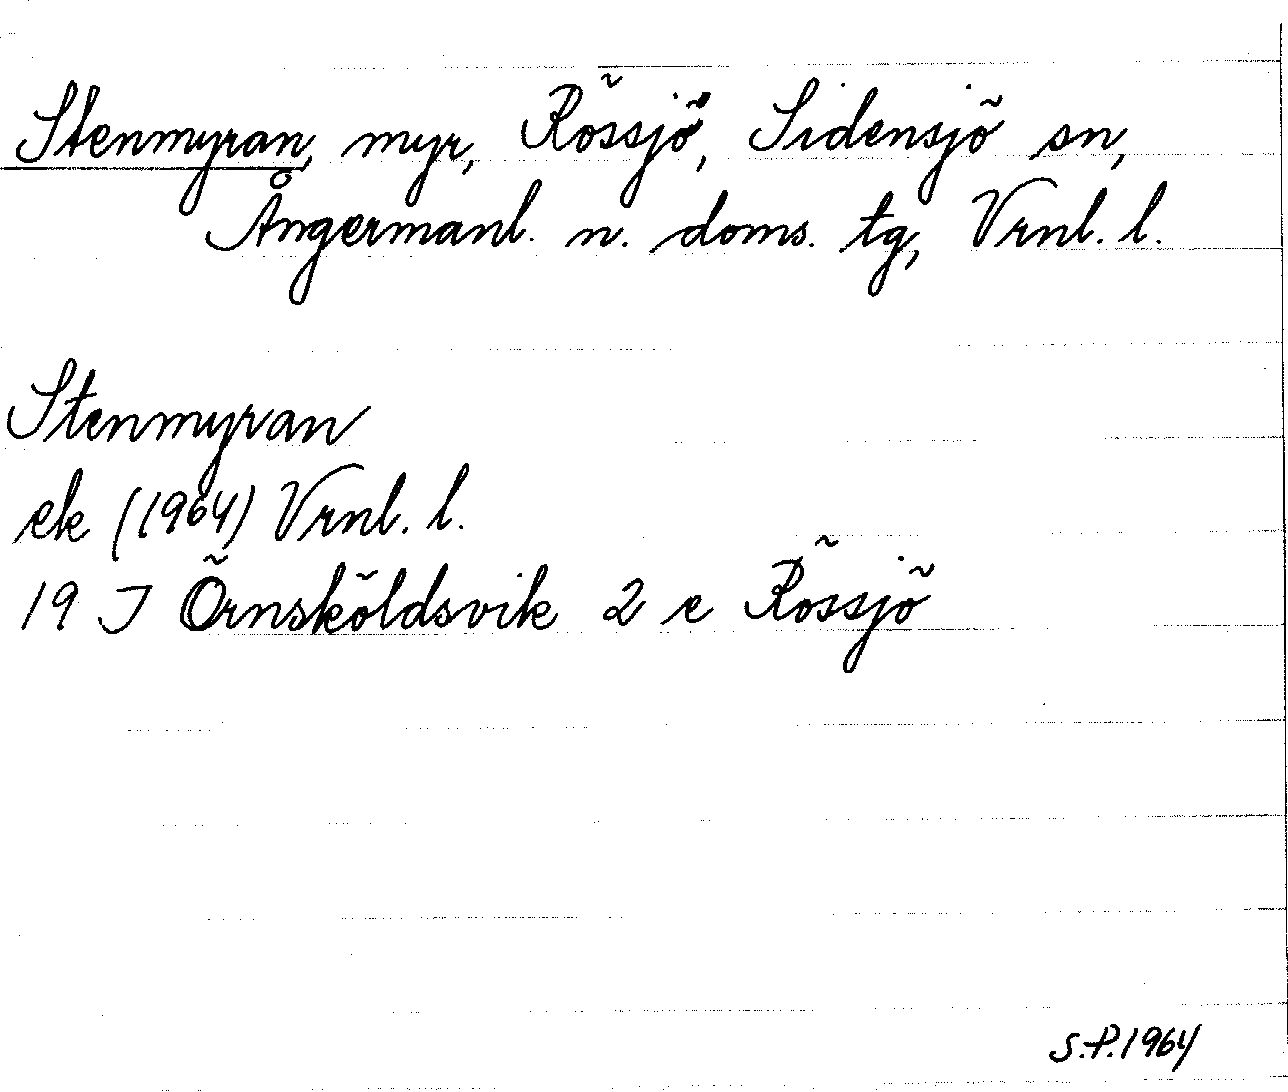 Stenmyran, myr, Rössjö, Sidensjö sn,
Ångermanl. n. doms. tg, Vrnl. l.
Stenmyran
ek (1964) Vrnl. l.
19 J Örnsköldsvik 2 e Rössjö
S.P.1964